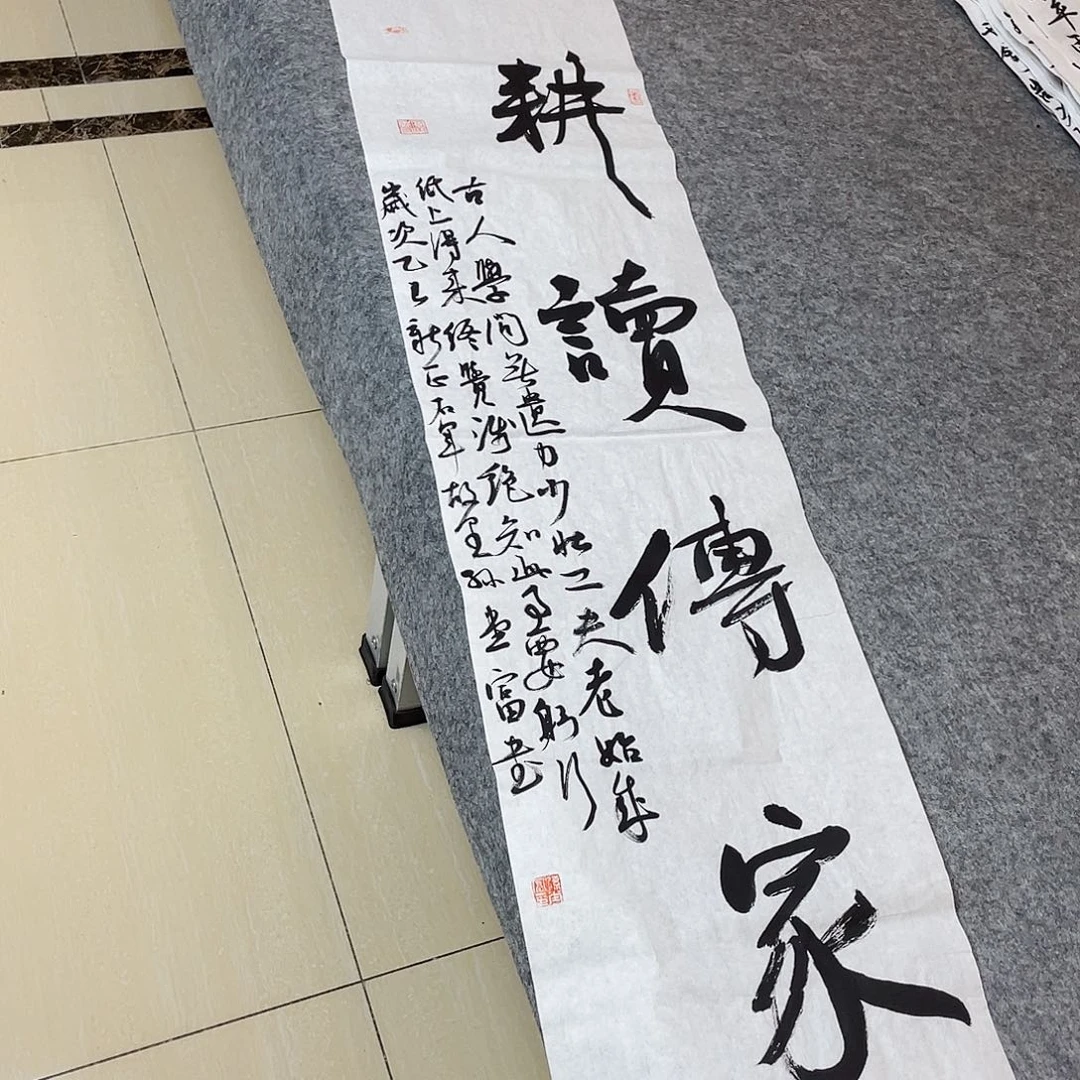 耕讀傳家
古人學問無遺力少壯工夫老始成
紙上得來終覺淺絕知此事要躬行
歲次乙巳新正右軍故里孫富書